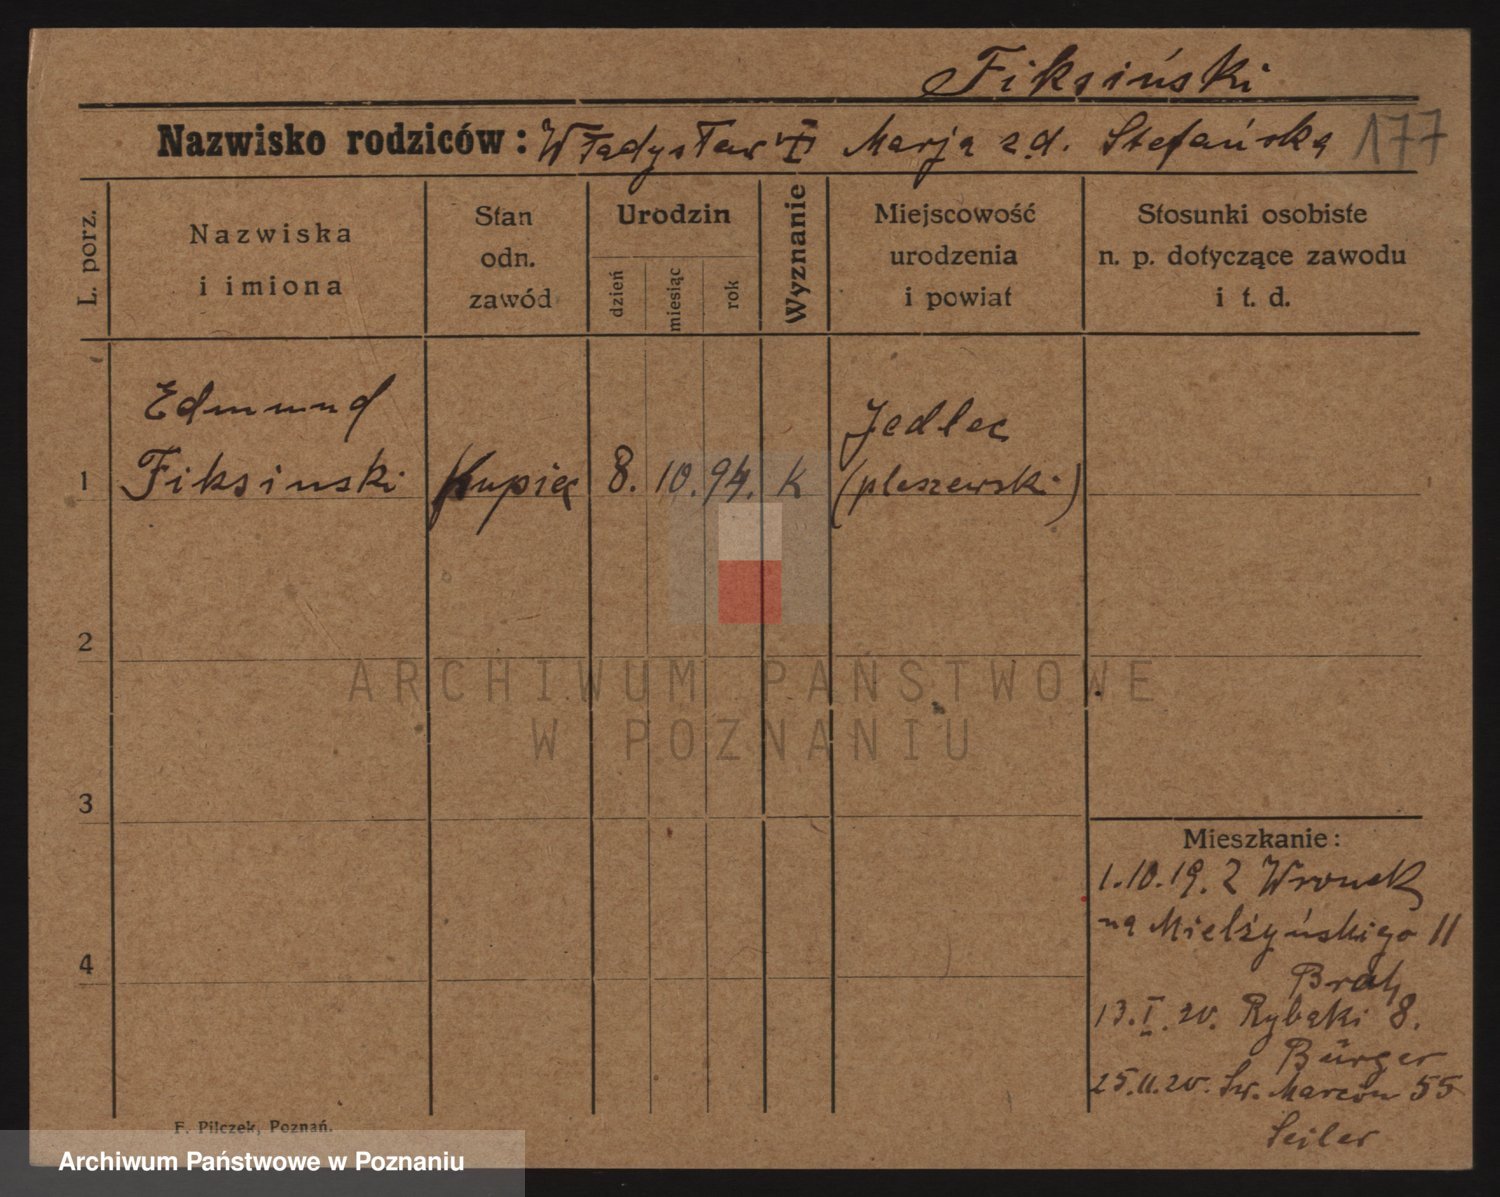 Fiksiński
Nazwisko rodziców: Władysław Marja z.d. Stefańska 177
L. porz.
Nazwiska
i imiona
Stan
odn.
zawód
Urodzin
dzień
miesiąc
rok
Wyznanie
Miejscowość
urodzenia
i powiat
Stosunki osobiste
n. p. dotyczące zawodu
i t. d.
Edmund
Jedlec
1 Fiksinski kupiec 8. 10. 94. K (pleszewski)
2
3
4
Mieszkanie:
1.10.19. z Wronek
na Mielżyńskigo 11
13.I.20. Rybaki 8.
Bürger
25.II.20. Św. Marcin 55
Seiler
F. Pilczek, Poznań.
ARCHIWUM PAŃSTWOWE
W POZNANIU
Archiwum Państwowe w Poznaniu